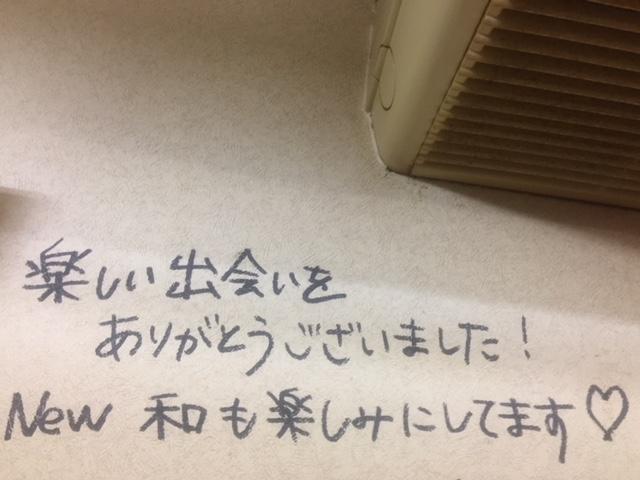 楽しい出会いを
ありがとうございました!
New 和も楽しみにしてます♡